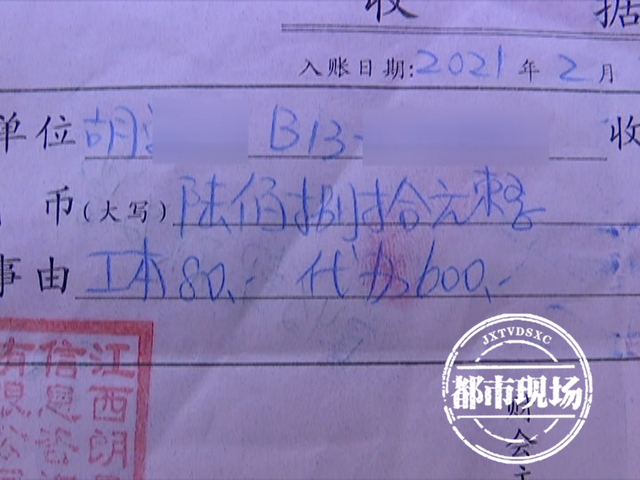 收 据
入账日期:2021年2月
单位 胡 B13- 收
币(大写) 陆佰捌拾元整
事由 工本80.- 代办600.-
JXTVDSXC
都市现场
江西朗
信息咨询
有限公司
财会主